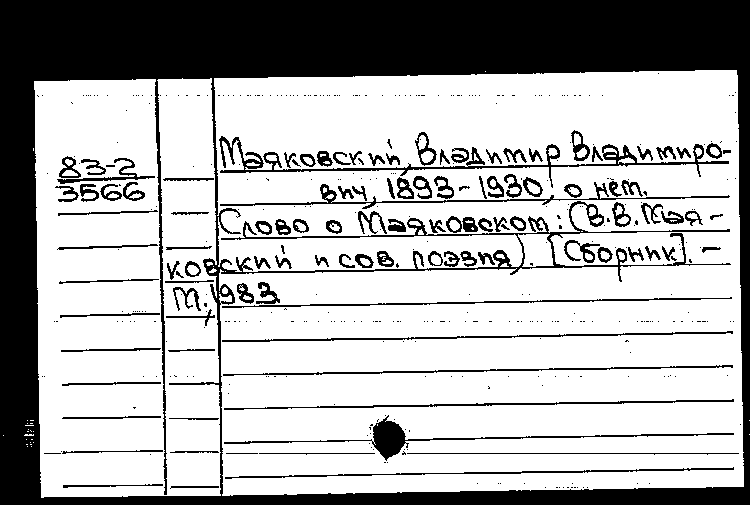 83-2
3566
Маяковский, Владимир Владимиро-
вич, 1893-1930, о нём.
Слово о Маяковском: (В.В. Мая-
ковский и сов. поэзия). [Сборник]. -
М., 1983